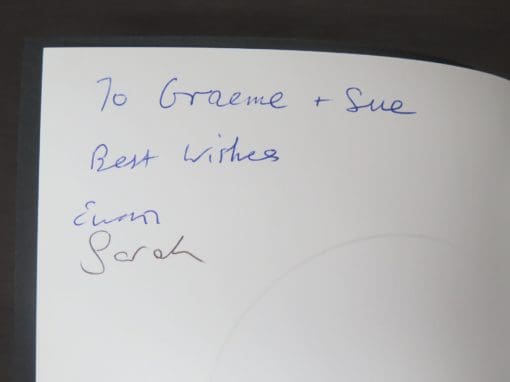 To Graeme + Sue
Best Wishes
Euan
Sarah